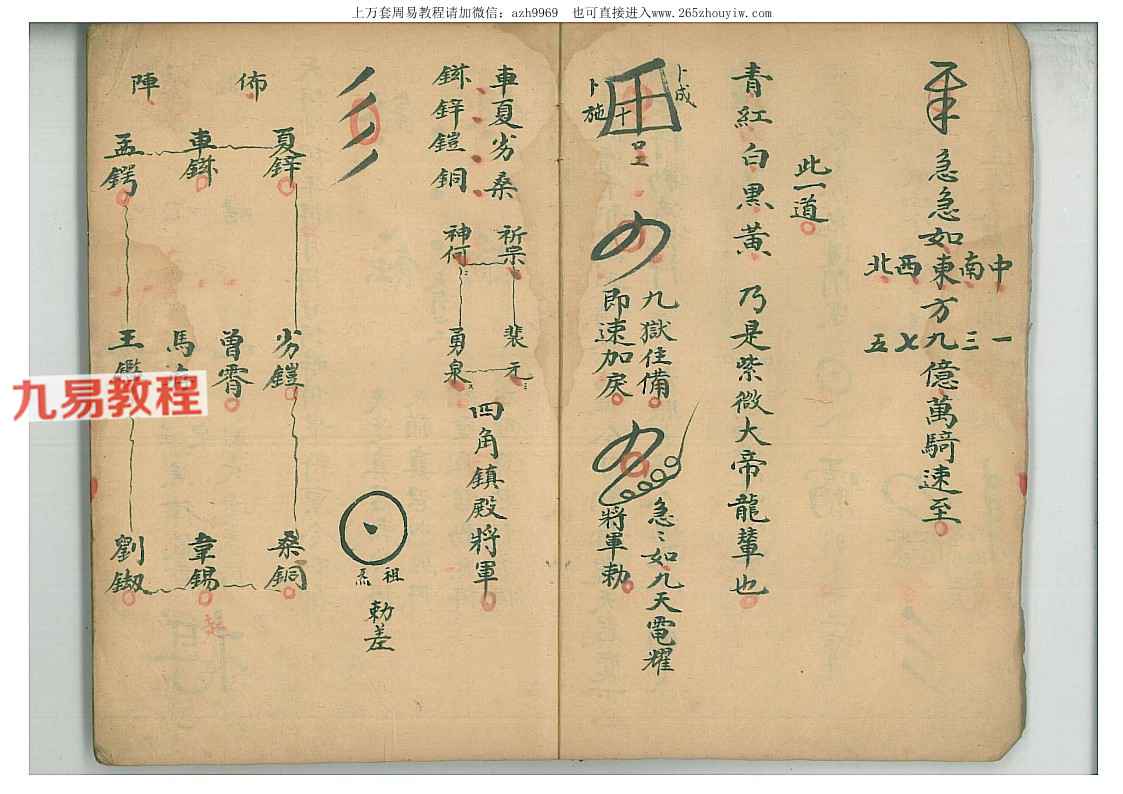 上万套周易教程请加微信：azh9969　也可直接进入www.265zhouyiw.com
急急如東方九億萬騎速至
中南西北
一三七五
此一道
青紅白黑黃　乃是紫微大帝龍輦也
卜成
卜施
九獄往備
即速加戾
急〻如九天電耀
將軍勅
車夏劣桑
鋅鎧銅
祈宗
神何
裴元
勇泉
四角鎮殿將軍
祖炁
勅差
佈陣
夏鋅
車
孟鍔
劣鎧
曾霄
馬
王鑑
桑銅
韋錫
劉
九易教程